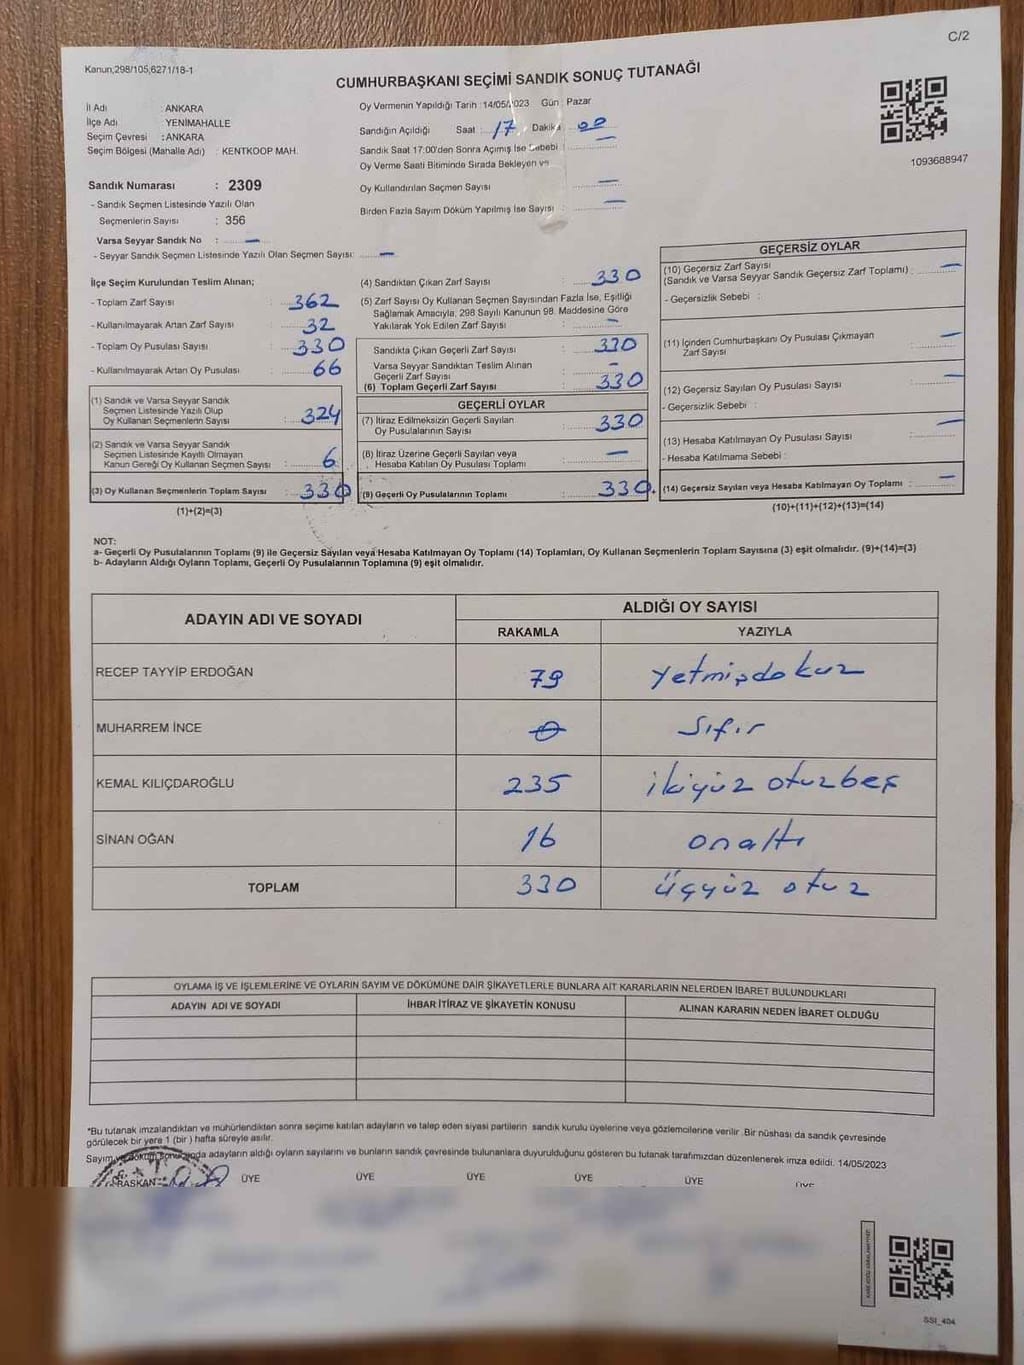 C/2
Kanun;298/105;6271/18-1
CUMHURBAŞKANI SEÇİMİ SANDIK SONUÇ TUTANAĞI
İl Adı : ANKARA
İlçe Adı : YENİMAHALLE
Seçim Çevresi : ANKARA
Seçim Bölgesi (Mahalle Adı) : KENTKOOP MAH.
Oy Vermenin Yapıldığı Tarih : 14/05/2023 Gün : Pazar
Sandığın Açıldığı Saat : 17 Dakika 00
Sandık Saat 17:00'den Sonra Açımış İse Sebebi : —
Oy Verme Saati Bitiminde Sırada Bekleyen ve
Oy Kullandırılan Seçmen Sayısı —
Birden Fazla Sayım Döküm Yapılmış İse Sayısı : —
1093688947
Sandık Numarası : 2309
- Sandık Seçmen Listesinde Yazılı Olan
Seçmenlerin Sayısı : 356
Varsa Seyyar Sandık No : —
- Seyyar Sandık Seçmen Listesinde Yazılı Olan Seçmen Sayısı: —
İlçe Seçim Kurulundan Teslim Alınan;
- Toplam Zarf Sayısı : 362
- Kullanılmayarak Artan Zarf Sayısı : 32
- Toplam Oy Pusulası Sayısı : 330
- Kullanılmayarak Artan Oy Pusulası : 66
(1) Sandık ve Varsa Seyyar Sandık
Seçmen Listesinde Yazılı Olup
Oy Kullanan Seçmenlerin Sayısı : 324
(2) Sandık ve Varsa Seyyar Sandık
Seçmen Listesinde Kayıtlı Olmayan
Kanun Gereği Oy Kullanan Seçmen Sayısı : 6
(3) Oy Kullanan Seçmenlerin Toplam Sayısı : 330
(1)+(2)=(3)
(4) Sandıktan Çıkan Zarf Sayısı : 330
(5) Zarf Sayısı Oy Kullanan Seçmen Sayısından Fazla İse, Eşitliği
Sağlamak Amacıyla; 298 Sayılı Kanunun 98. Maddesine Göre
Yakılarak Yok Edilen Zarf Sayısı : —
Sandıkta Çıkan Geçerli Zarf Sayısı : 330
Varsa Seyyar Sandıktan Teslim Alınan
Geçerli Zarf Sayısı : —
(6) Toplam Geçerli Zarf Sayısı : 330
GEÇERLİ OYLAR
(7) İtiraz Edilmeksizin Geçerli Sayılan
Oy Pusulalarının Sayısı : 330
(8) İtiraz Üzerine Geçerli Sayılan veya
Hesaba Katılan Oy Pusulası Toplamı : —
(9) Geçerli Oy Pusulalarının Toplamı : 330.
GEÇERSİZ OYLAR
(10) Geçersiz Zarf Sayısı
(Sandık ve Varsa Seyyar Sandık Geçersiz Zarf Toplamı) : —
- Geçersizlik Sebebi :
(11) İçinden Cumhurbaşkanı Oy Pusulası Çıkmayan
Zarf Sayısı : —
(12) Geçersiz Sayılan Oy Pusulası Sayısı : —
- Geçersizlik Sebebi :
(13) Hesaba Katılmayan Oy Pusulası Sayısı : —
- Hesaba Katılmama Sebebi :
(14) Geçersiz Sayılan veya Hesaba Katılmayan Oy Toplamı : —
(10)+(11)+(12)+(13)=(14)
NOT:
a- Geçerli Oy Pusulalarının Toplamı (9) ile Geçersiz Sayılan veya Hesaba Katılmayan Oy Toplamı (14) Toplamları, Oy Kullanan Seçmenlerin Toplam Sayısına (3) eşit olmalıdır. (9)+(14)=(3)
b- Adayların Aldığı Oyların Toplamı, Geçerli Oy Pusulalarının Toplamına (9) eşit olmalıdır.
ADAYIN ADI VE SOYADI ALDIĞI OY SAYISI
RAKAMLA YAZIYLA
RECEP TAYYİP ERDOĞAN 79 yetmişdokuz
MUHARREM İNCE 0 sıfır
KEMAL KILIÇDAROĞLU 235 ikiyüz otuzbeş
SİNAN OĞAN 16 onaltı
TOPLAM 330 üçyüz otuz
OYLAMA İŞ VE İŞLEMLERİNE VE OYLARIN SAYIM VE DÖKÜMÜNE DAİR ŞİKAYETLERLE BUNLARA AİT KARARLARIN NELERDEN İBARET BULUNDUKLARI
ADAYIN ADI VE SOYADI İHBAR İTİRAZ VE ŞİKAYETİN KONUSU ALINAN KARARIN NEDEN İBARET OLDUĞU
*Bu tutanak imzalandıktan ve mühürlendikten sonra seçime katılan adayların ve talep eden siyasi partilerin sandık kurulu üyelerine veya gözlemcilerine verilir .Bir nüshası da sandık çevresinde
görülecek bir yere 1 (bir ) hafta süreyle asılır.
Sayım ve döküm sonucunda adayların aldığı oyların sayılarını ve bunların sandık çevresinde bulunanlara duyurulduğunu gösteren bu tutanak tarafımızdan düzenlenerek imza edildi. 14/05/2023
BAŞKAN ÜYE ÜYE ÜYE ÜYE ÜYE ÜYE
SSI_404